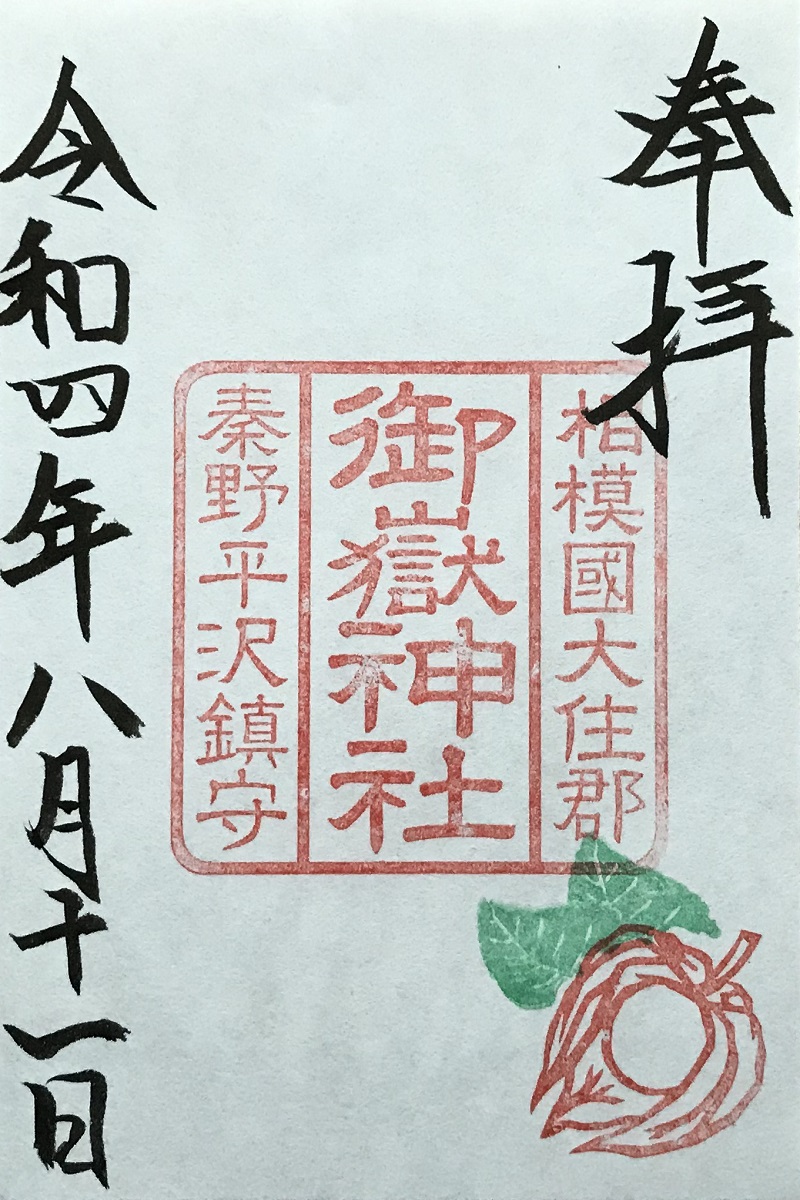 奉拝
相模國大住郡
御嶽神社
秦野平沢鎮守
令和四年八月十一日